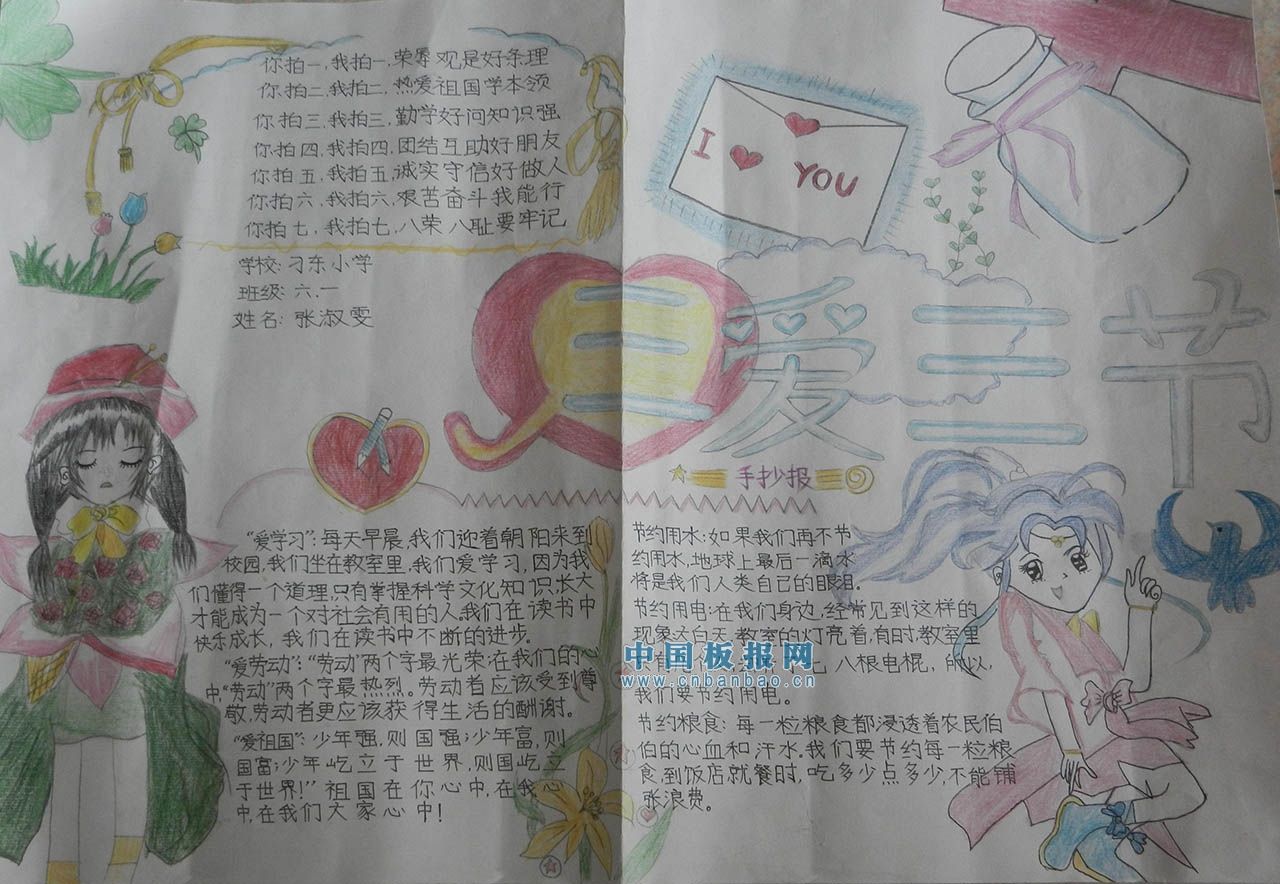 你拍一,我拍一,荣辱观是好条理
你拍二,我拍二,热爱祖国学本领
你拍三,我拍三,勤学好问知识强
你拍四,我拍四,团结互助好朋友
你拍五,我拍五,诚实守信好做人
你拍六,我拍六,艰苦奋斗我能行
你拍七,我拍七,八荣八耻要牢记
学校:刁东小学
班级:六.一
姓名:张淑雯
I YOU
三爱三节
手抄报
“爱学习”:每天早晨,我们迎着朝阳来到
校园,我们坐在教室里,我们爱学习,因为我
们懂得一个道理,只有掌握科学文化知识,长大
才能成为一个对社会有用的人。我们在读书中
快乐成长,我们在读书中不断的进步。
“爱劳动”:“劳动”两个字最光荣:在我们的心
中,“劳动”两个字最热烈。劳动者应该受到尊
敬,劳动者更应该获得生活的酬谢。
“爱祖国”:少年强,则国强;少年富,则
国富;少年屹立于世界,则国屹立
于世界!”祖国在你心中,在我心
中,在我们大家心中!
节约用水:如果我们再不节
约用水,地球上最后一滴水
将是我们人类自己的眼泪。
节约用电:在我们身边,经常见到这样的
现象大白天,教室的灯亮着,有时,教室里
八根电棍,所以,
我们要节约用电。
节约粮食:每一粒粮食都浸透着农民伯
伯的心血和汗水。我们要节约每一粒粮
食,到饭店就餐时,吃多少点多少,不能铺
张浪费。
中国板报网
www.cnbanbao.cn